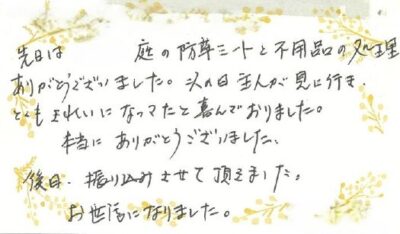 先日は 庭の防草シートと不用品の処理
ありがとうございました。次の日主人が見に行き、
とてもきれいになってたと喜んでおりました。
本当にありがとうございました。
後日、振り込みさせて頂きました。
お世話になりました。